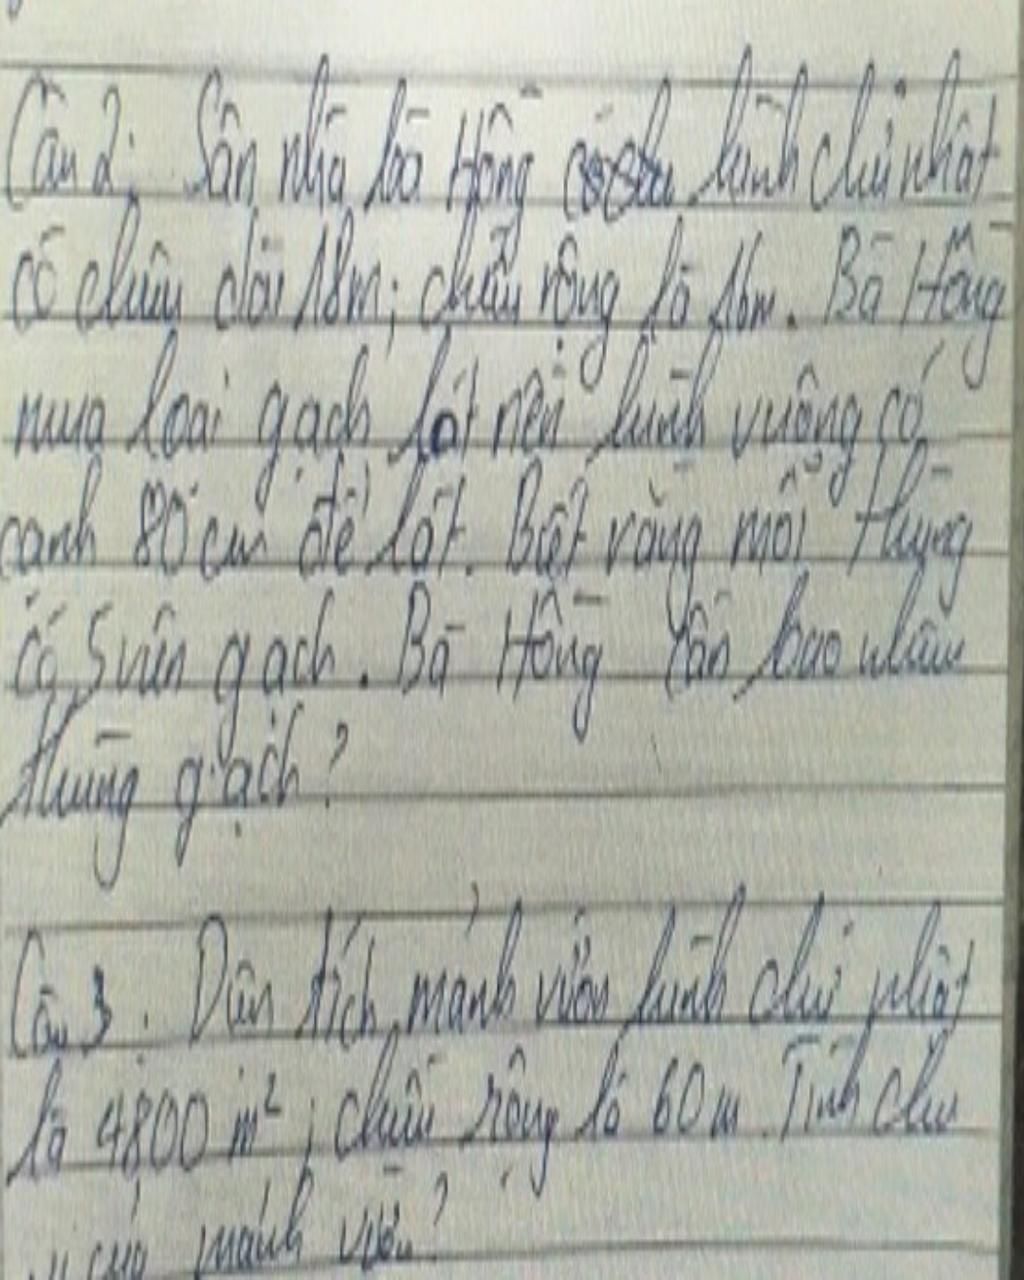 Câu 2: Sân nhà bà Hồng hình chữ nhật
có chiều dài 18m; chiều rộng là 16m. Bà Hồng
mua loại gạch lát nền hình vuông có
cạnh 80 cm để lát. Biết rằng mỗi thùng
có 5 viên gạch. Bà Hồng cần bao nhiêu
thùng gạch?
Câu 3. Diện tích mảnh vườn hình chữ nhật
là 4800 m²; chiều rộng là 60 m. Tính chu
vi của mảnh vườn?